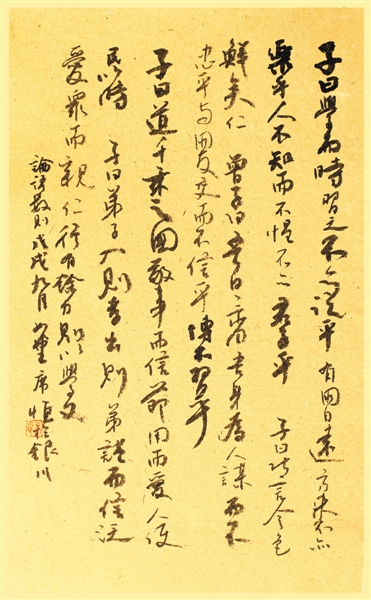 子曰學而時習之不亦說乎 有朋自遠方來不亦
樂乎人不知而不慍不亦君子乎 子曰巧言令色
鮮矣仁 曾子曰吾日三省吾身為人謀而不
忠乎與朋友交而不信乎傳不習乎
子曰道千乘之國敬事而信節用而愛人使
民以時 子曰弟子入則孝出則弟謹而信汎
愛眾而親仁行有餘力則以學文
論語數則戊戌九月 席 於銀川